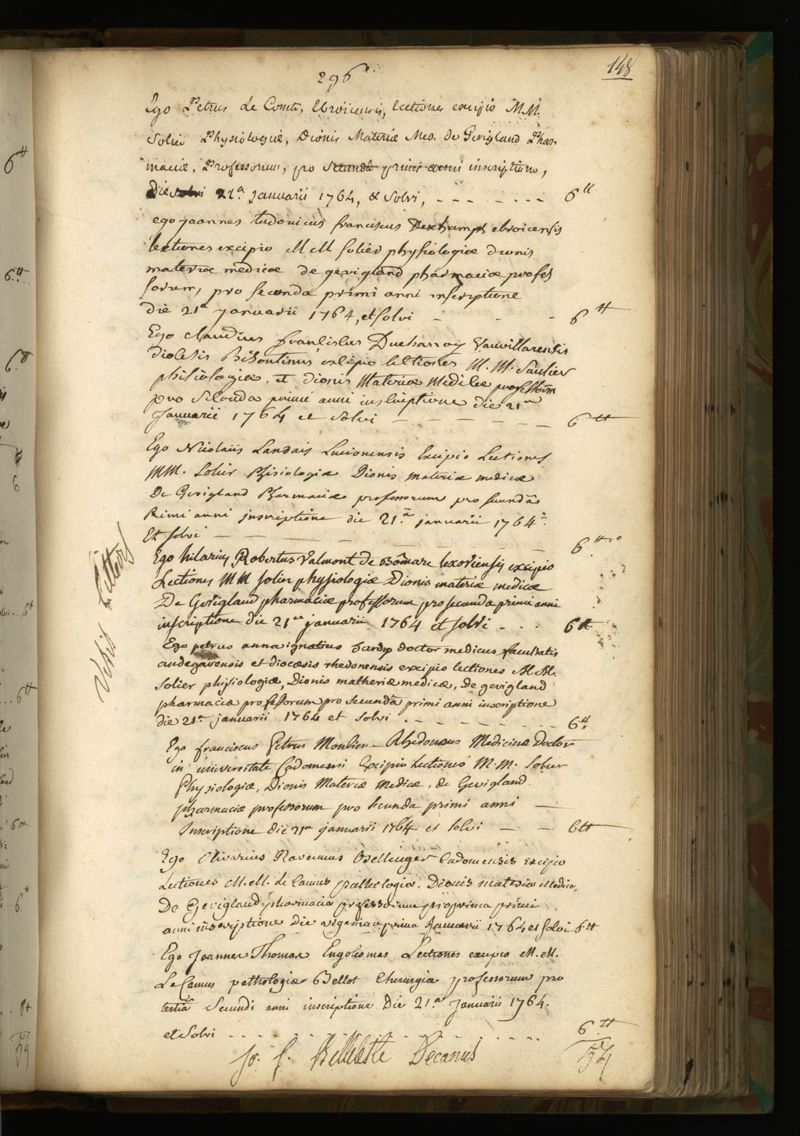 296
148
Ego Petrus Le Comte, Ebroicensis, Lectiones excipio M.M.
Solier Physiologiæ, Dionis Materiæ Med. de Gevigland Phar-
maciæ, Professorum, pro secunda primi anni inscriptione,
Die 21.ª januarii 1764, & solvi, - - - - - - - 6 ᵗᵗ
ego joannes ludovicus franciscus Deschamps ebroicensis
lectiones excipio M M solier physiologiæ dionis
materiæ medicæ de gevigland pharmaciæ profes
sorum, pro secunda primi anni inscriptione
die 21ª januarii 1764, et solvi - - - - 6 ᵗᵗ
Ego Claudius franciscus Ducharroy Vauvillarensis
diocesis Bisontinus excipio lectiones M. M. Saulier
phisiologiæ, et dionis Materiæ Medicæ professorum
pro secunda primi anni inscriptione die 21ª
januarii 1764 et solvi - - - - - - 6 ᵗᵗ
Ego Nicolaüs Landais Lucionensis Excipio Lectiones
MM. Solier Phisiologiæ Dionis materiæ medicæ
De Gevigland Pharmaciæ professorum pro secundâ
Primi anni jnscriptione die 21.ª januarii 1764.
Et solvi - - - - - - - 6 ᵗᵗ
Visis Litteris
Ego hilarius Robertus Valmont de Bomare lexoviensis excipio
Lectiones MM solier physiologiæ Dionis materiæ medicæ
De Gevigland pharmaciæ professorum pro secunda primi anni
inscriptione die 21ª januarii 1764 et solvi - - - 6 ᵗᵗ
Ego petrus anna ignatius hardy doctor medicus facultatis
andegavensis et diocæsis rhedonensis excipio lectiones M.M.
solier physiologiæ, Dionis matheriæ medicæ, de gevigland
pharmaciæ professorum pro secunda primi anni inscriptione
die 21ª januarii 1764 et solvi - - - - - - - 6 ᵗᵗ
Ego franciscus Petrus Rhedonæus Medicinæ Doctor
in universitate Cadomensi Excipio Lectiones M. M. Solier
Physiologiæ, Dionis Materiæ Medicæ, de Gevigland
pharmaciæ professorum pro secunda primi anni —
Inscriptione die 21ª januarii 1764 et solvi - - 6 ᵗᵗ
Ego Olivarius Bellenger Cadomensis excipio
Lectiones M.M. le Camus pathologiæ, Dionis materiæ Medicæ,
De Gevigland pharmaciæ professorum pro prima primi
anni inscriptione Die vigesima prima Januarii 1764 et solvi 6 ᵗᵗ
Ego Joannes Thomas Engolismas Lectiones excipio M. M.
Le Camus pathologiæ Bellot Chirurgiæ professorum pro
tertiâ Secundi anni inscriptione Die 21ª januarii 1764.
et solvi - - - - - - - - - - - 6 ᵗᵗ
54
Jo. f. Belleteste Decanus